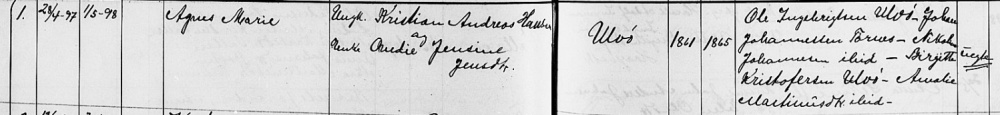 1. 24/4-97 1/5-98 Agnes Marie Ungk. Kristian Andreas Hansen
og
Pike Amdie Jensine
Jensdt.
Ulvö 1861 1865
Ole Ingebrigtsen Ulvö - Johan
Johannessen - Nikolai
Johannesen ibid - Birgitte
Kristofersen Ulvö - Amalie
Martinusdt. ibid -
uegte